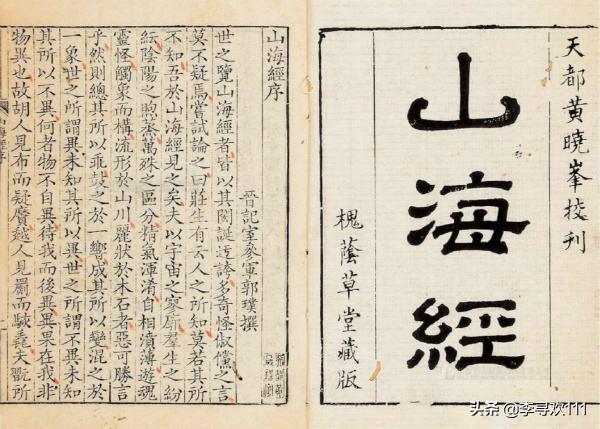 天都黄曉峯挍刊
山海經
槐蔭草堂藏版
山海經序
晉記室參軍郭璞撰
世之覽山海經者皆以其閎誕迂誇多奇怪俶儻之言
莫不疑焉嘗試論之曰莊生有云人之所知莫若其所
不知吾於山海經見之矣夫以宇宙之寥廓羣生之紛
紜陰陽之煦蒸萬殊之區分精氣渾淆自相濆薄遊魂
靈怪觸象而構流形於山川麗狀於木石者惡可勝言
乎然則總其所以乖鼓之於一響成其所以變混之於
一象世之所謂異未知其所以異世之所謂不異未知
其所以不異何者物不自異待我而後異異果在我非
物異也故胡人見布而疑黂越人見罽而駭毳夫翫所
头条 @李寻欢111